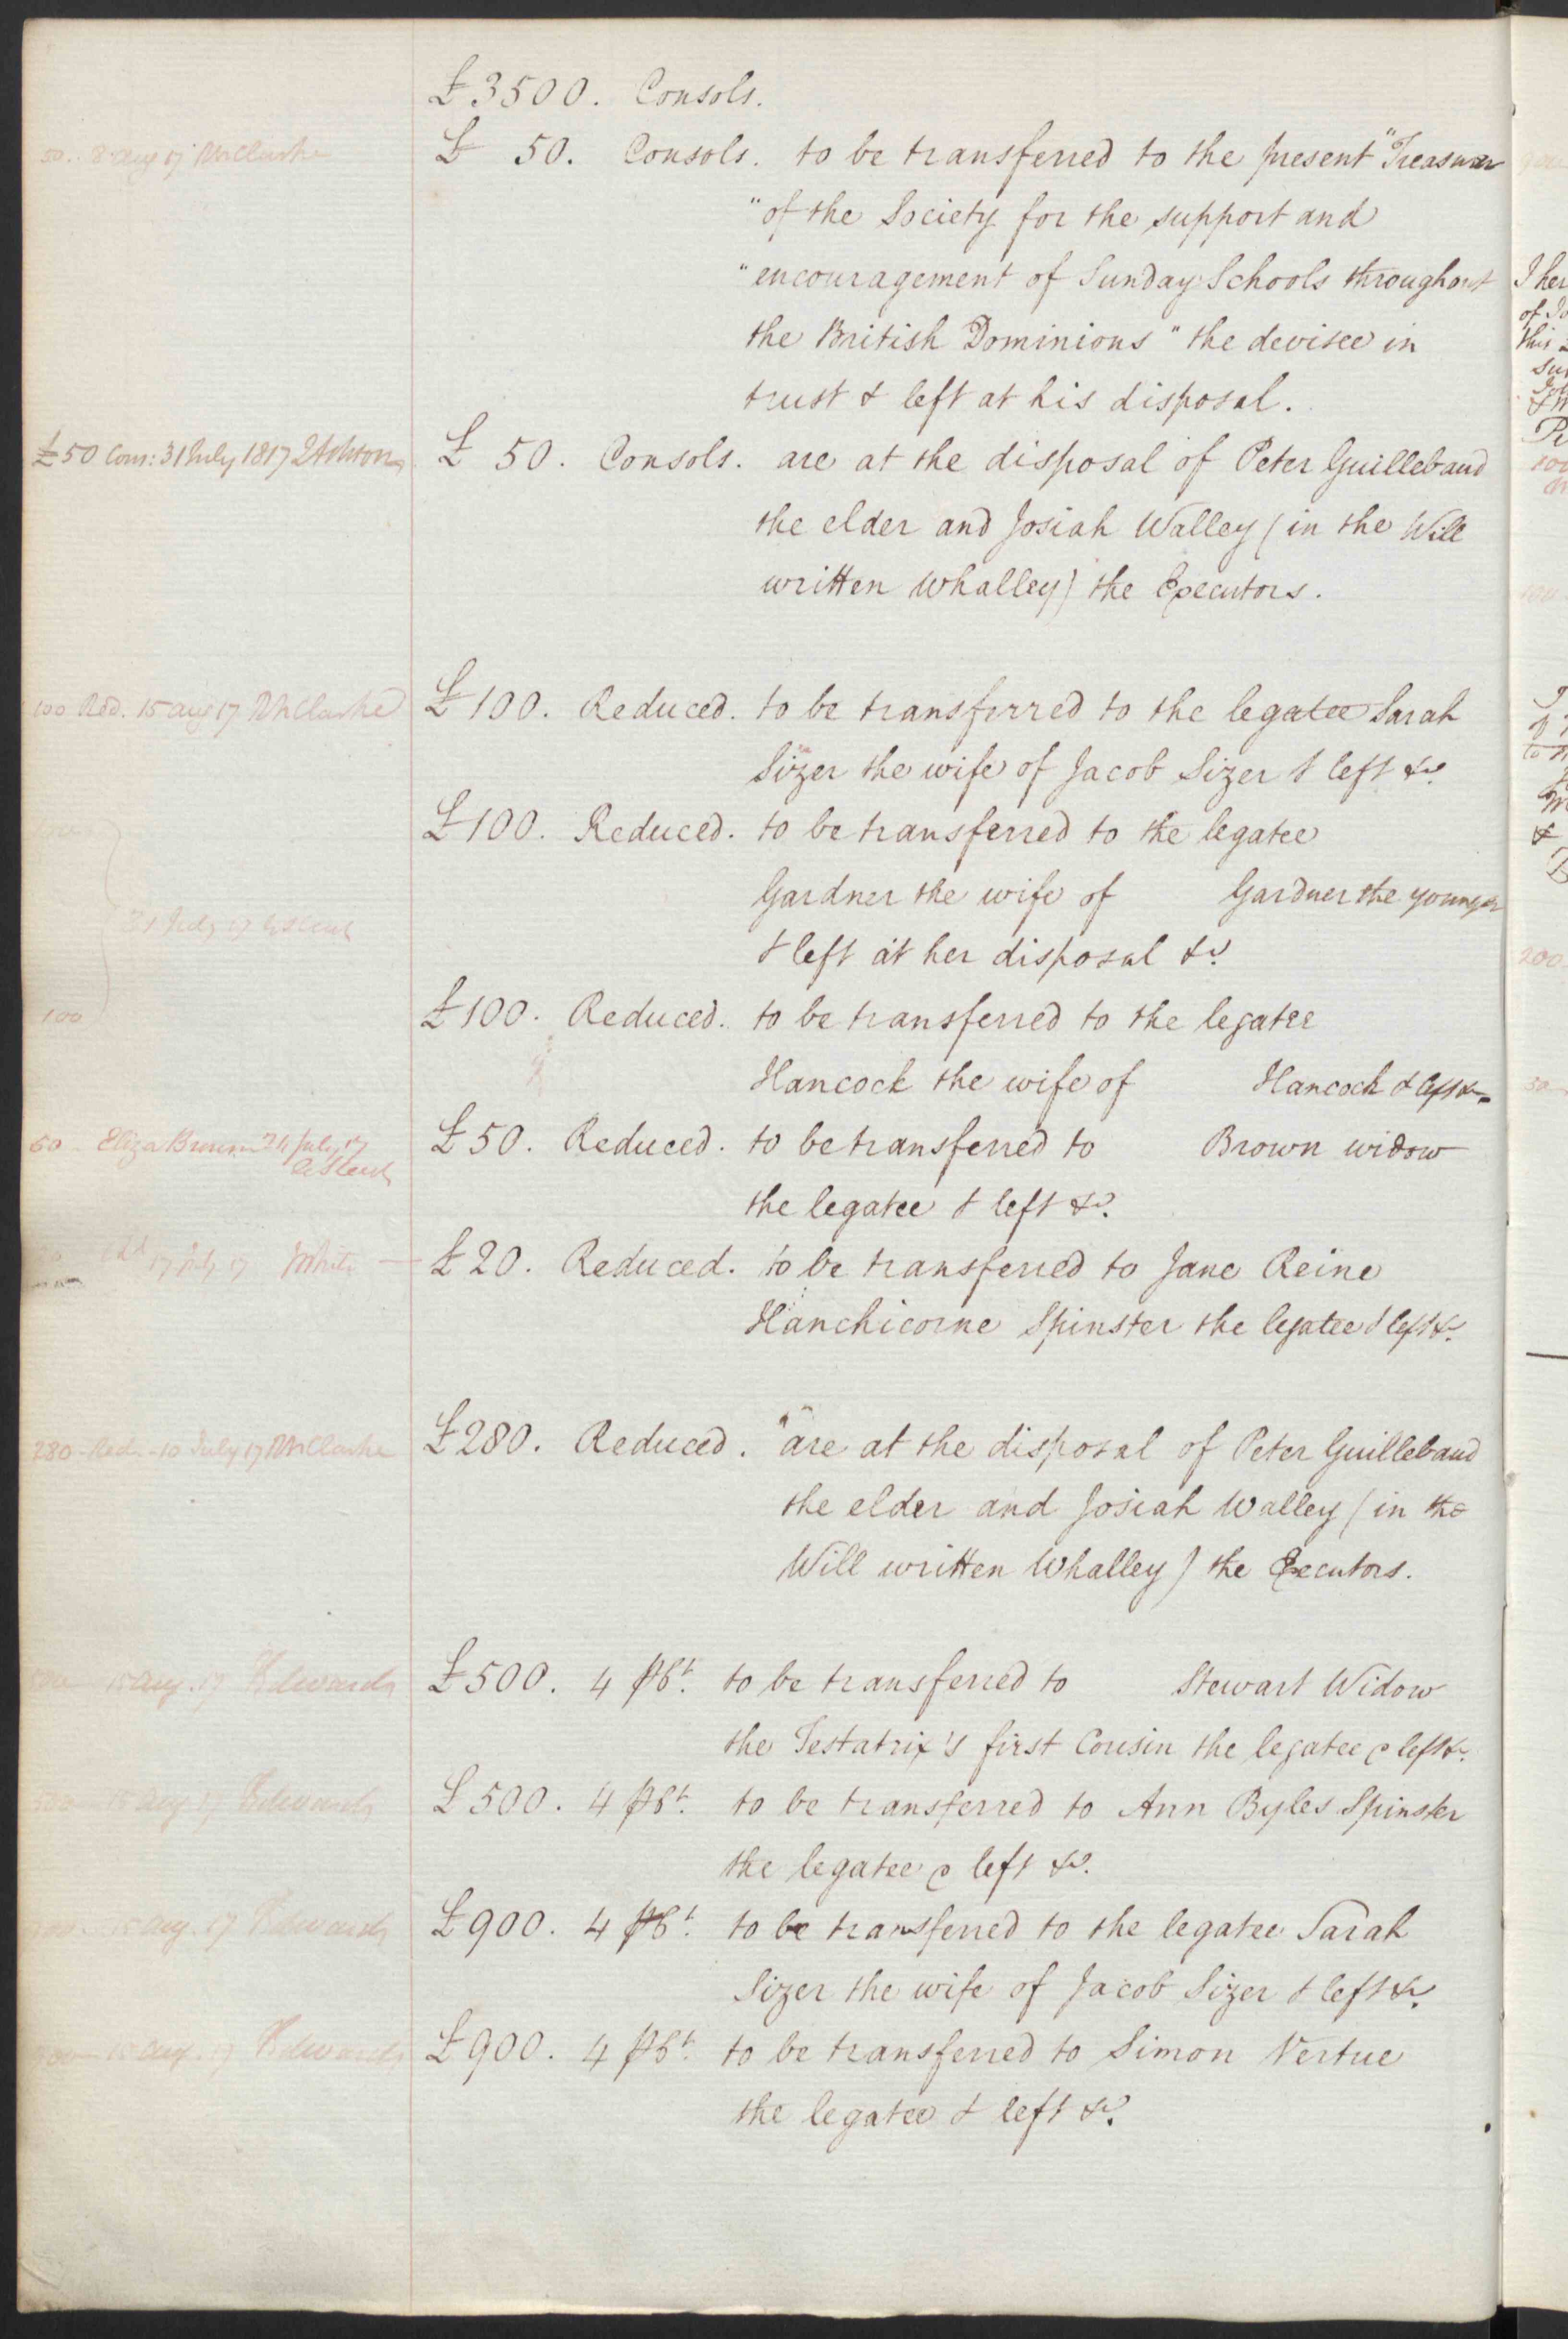 £3500. Consols.
50. 8 Aug 17 Clarke
£ 50. Consols. to be transferred to the present "Treasurer
"of the Society for the support and
"encouragement of Sunday Schools throughout
the British Dominions" the devisee in
trust & left at his disposal.
£50 Cons: 31 July 1817 Ashton
£ 50. Consols. are at the disposal of Peter Guillebaud
the elder and Josiah Walley (in the Will
written Whalley) the Executors.
100 Red. 15 Aug 17 Clarke
£100. Reduced. to be transferred to the legatee Sarah
Sizer the wife of Jacob Sizer & left &c.
£100. Reduced. to be transferred to the legatee
Gardner the wife of Gardner the younger
& left at her disposal &c.
100
£100. Reduced. to be transferred to the legatee
Hancock the wife of Hancock & left &c.
50 Eliza Brown July 17
£50. Reduced. to be transferred to Brown widow
the legatee & left &c.
17 July 17 White
£20. Reduced. to be transferred to Jane Reine
Hanchicorne Spinster the legatee & left &c.
280 Red. 10 July 17 Clarke
£280. Reduced. are at the disposal of Peter Guillebaud
the elder and Josiah Walley (in the
Will written Whalley) the Executors.
15 Aug. 17 Edwards
£500. 4 P Ct. to be transferred to Stewart Widow
the Testatrix's first Cousin the legatee & left &c.
15 Aug 17 Edwards
£500. 4 P Ct. to be transferred to Ann Byles Spinster
the legatee & left &c.
15 Aug. 17 Edwards
£900. 4 P Ct. to be transferred to the legatee Sarah
Sizer the wife of Jacob Sizer & left &c.
15 Aug. 17 Edwards
£900. 4 P Ct. to be transferred to Simon Vertue
the legatee & left &c.